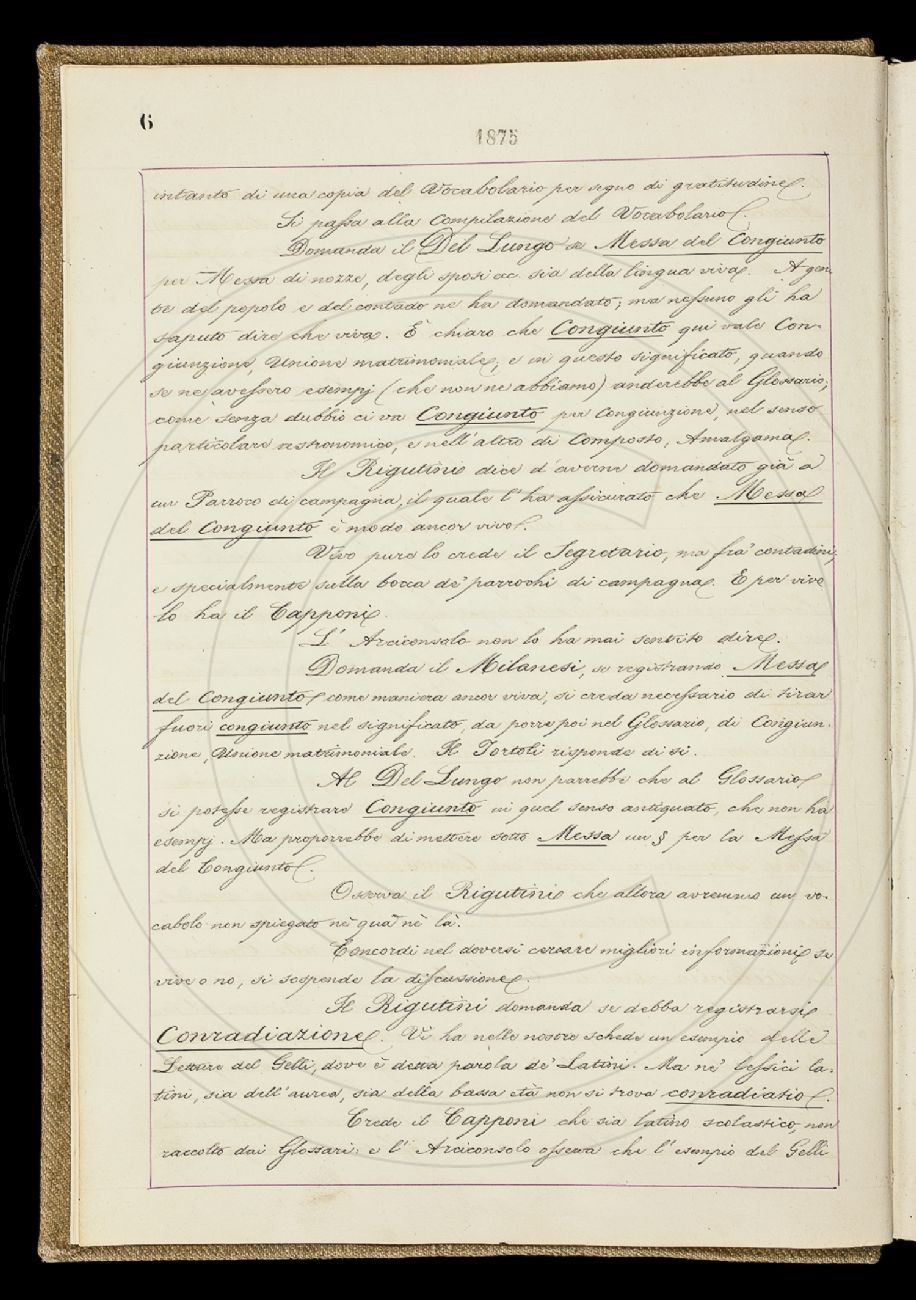 6
1875
intanto di una copia del Vocabolario per segno di gratitudine.
Si passa alla Compilazione del Vocabolario.
Domanda il Del Lungo se Messa del Congiunto
per Messa di nozze, degli sposi ec. sia della lingua viva. A gen-
te del popolo e del contado ne ha domandato; ma nessuno gli ha
saputo dire che viva. È chiaro che Congiunto qui vale Con-
giunzione, Unione matrimoniale; e in questo significato, quando
se ne avessero esempj (che non ne abbiamo) anderebbe al Glossario;
come senza dubbio ci va Congiunto per Congiunzione, nel senso
particolare astronomico, e nell'altro di Composto, Amalgama.
Il Rigutini dice d'averne domandato già a
un Parroco di campagna, il quale l'ha assicurato che Messa
del Congiunto è modo ancor vivo.
Vivo pure lo crede il Segretario, ma fra' contadini,
e specialmente sulla bocca de' parrochi di campagna. E per vivo
lo ha il Capponi.
L'Arciconsolo non lo ha mai sentito dire.
Domanda il Milanesi, se registrando Messa
del Congiunto come maniera ancor viva, si creda necessario di tirar
fuori congiunto nel significato, da porre poi nel Glossario, di Congiun-
zione, Unione matrimoniale. Il Tortoli risponde di sì.
Al Del Lungo non parrebbe che al Glossario
si potesse registrare Congiunto in quel senso antiquato, che non ha
esempj. Ma proporrebbe di mettere sotto Messa un § per la Messa
del Congiunto.
Osserva il Rigutini che allora avremmo un vo-
cabolo non spiegato nè qua nè là.
Concordi nel doversi cercare migliori informazioni se
vive o no, si sospende la discussione.
Il Rigutini domanda se debba registrarsi
Conradiazione. Vi ha nelle nostre schede un esempio delle
Letture del Gelli, dove è detta parola de' Latini. Ma ne' lessici la-
tini, sia dell'aurea, sia della bassa età non si trova conradiatio.
Crede il Capponi che sia latino scolastico, non
raccolto dai Glossari: e l'Arciconsolo osserva che l'esempio del Gelli